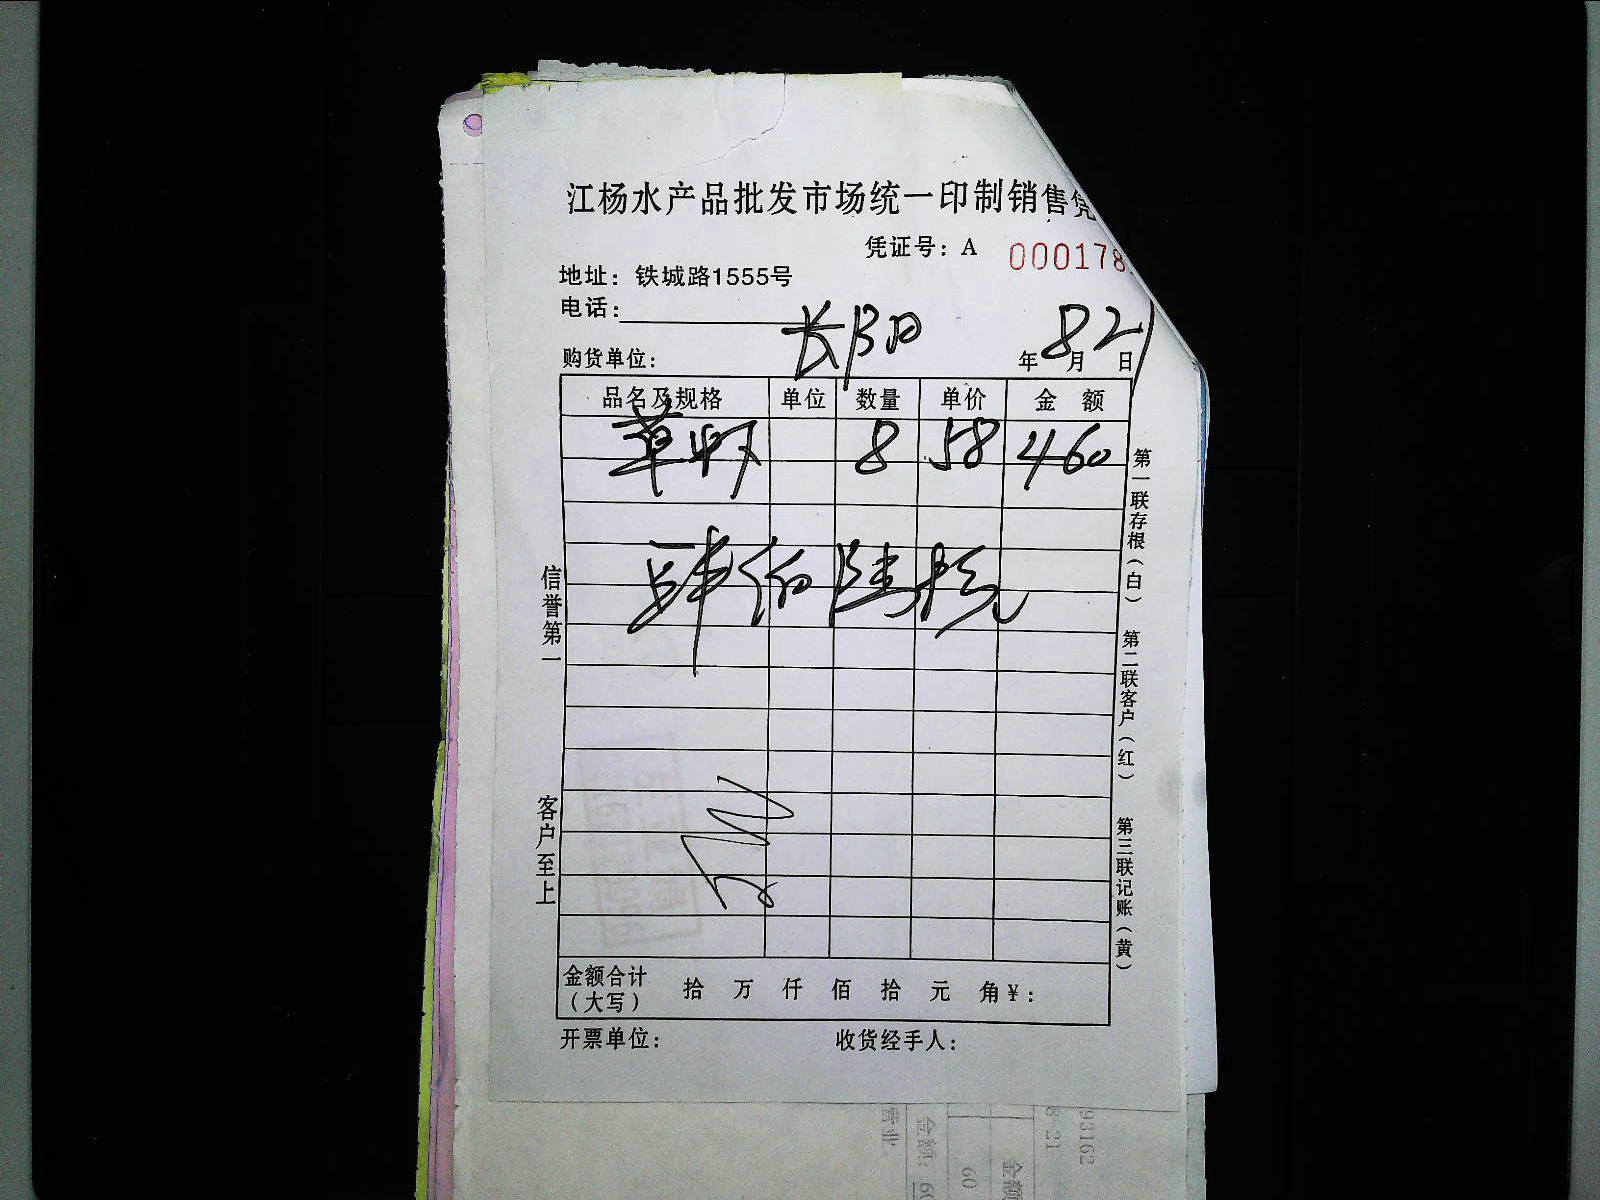 江杨水产品批发市场统一印制销售凭
凭证号：A 000178
地址：铁城路1555号
电话：
购货单位：长阳 年8月21日
品名及规格 单位 数量 单价 金额
草虾 8 58 460
肆佰陆拾元
信誉第一
客户至上
第一联存根（白）
第二联客户（红）
第三联记账（黄）
金额合计（大写） 拾 万 仟 佰 拾 元 角 ¥：
开票单位： 收货经手人：
93162
8 21
金额
60
金额：60
营业